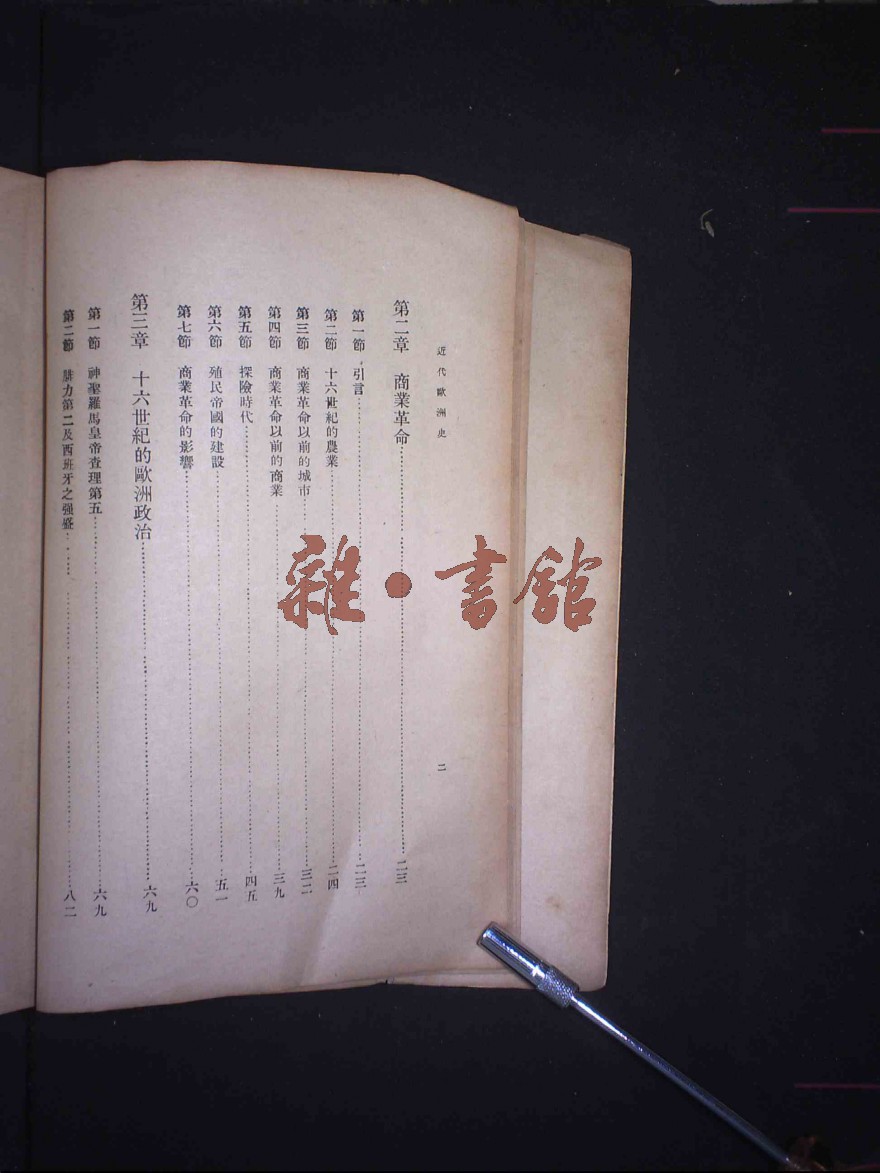 近代歐洲史
二
第二章 商業革命……二三
第一節 引言……二三
第二節 十六世紀的農業……二四
第三節 商業革命以前的城市……三二
第四節 商業革命以前的商業……三九
第五節 探險時代……四五
第六節 殖民帝國的建設……五一
第七節 商業革命的影響……六〇
第三章 十六世紀的歐洲政治……六九
第一節 神聖羅馬皇帝查理第五……六九
第二節 腓力第二及西班牙之强盛……八二
雜·書館